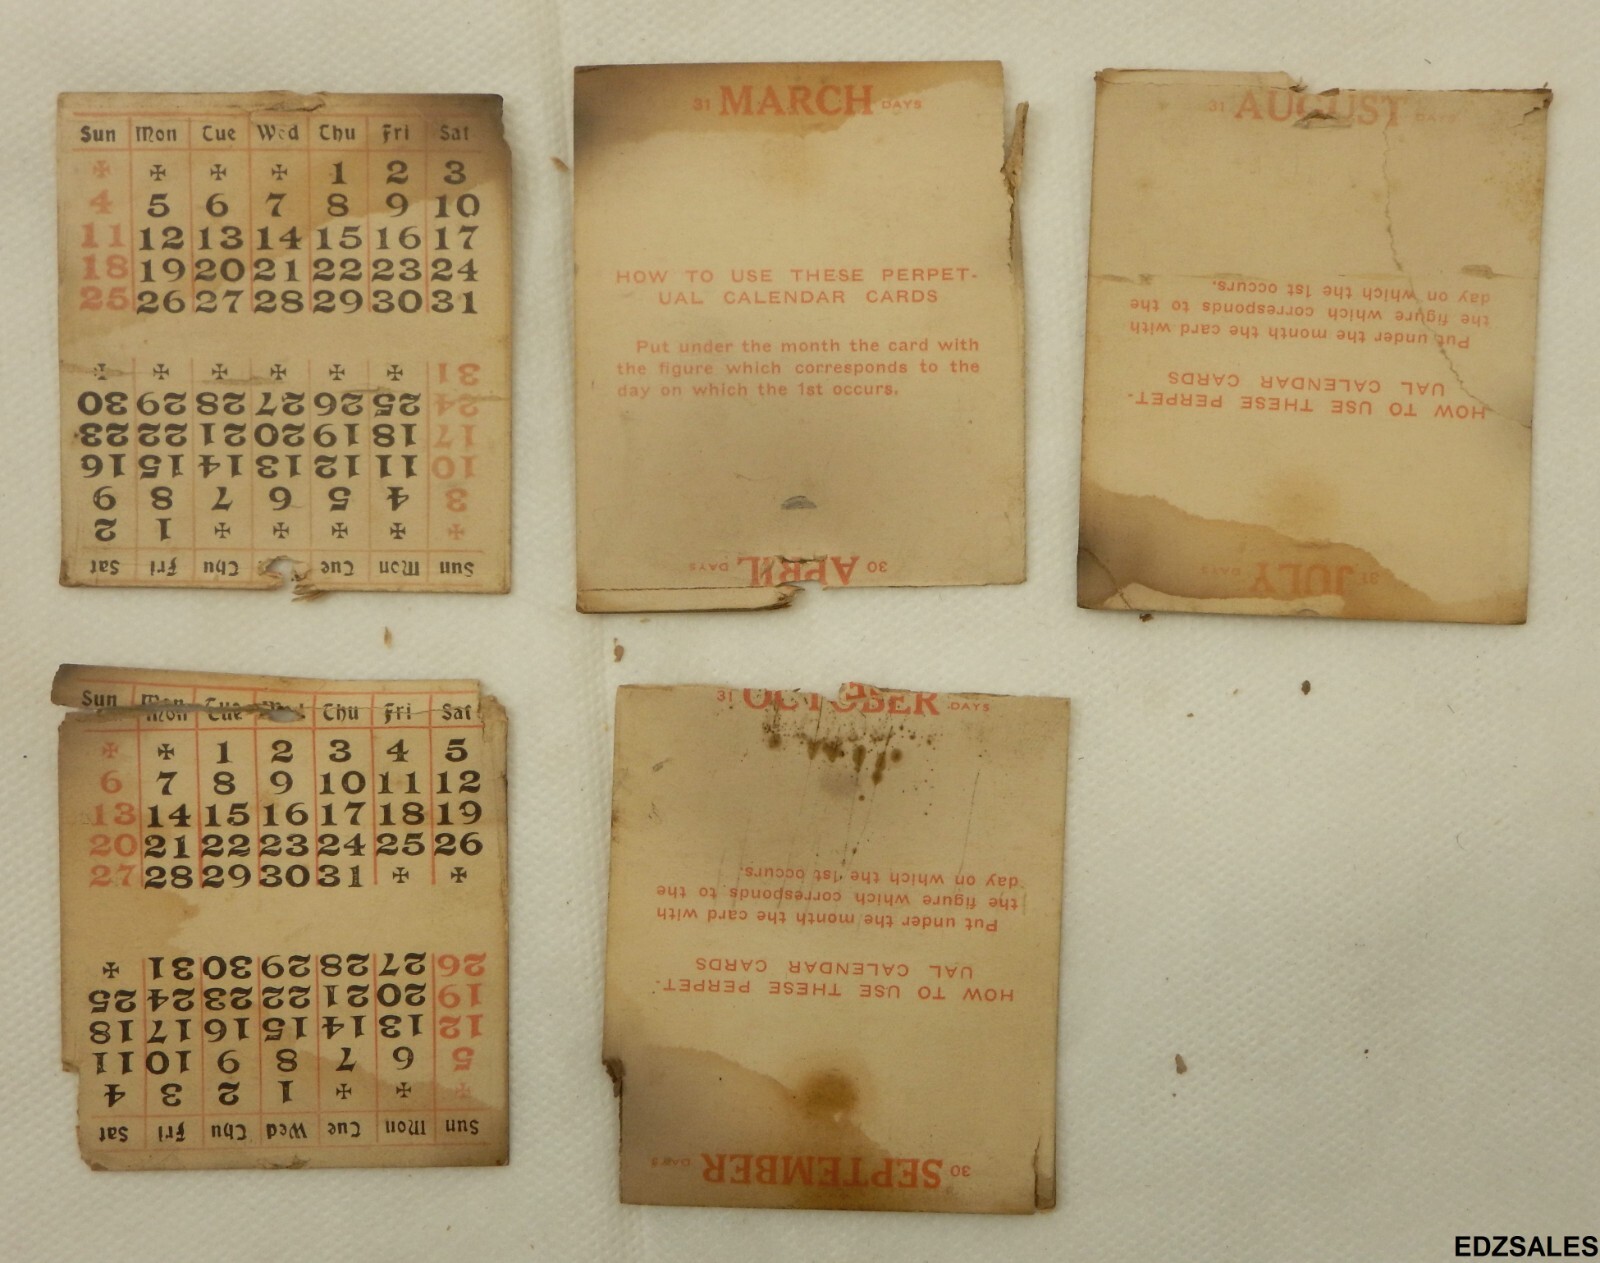 Sun Mon Tue Wed Thu Fri Sat
✠ ✠ ✠ ✠ 1 2 3
4 5 6 7 8 9 10
11 12 13 14 15 16 17
18 19 20 21 22 23 24
25 26 27 28 29 30 31
Sun Mon Tue Thu Fri Sat
✠ ✠ ✠ ✠ ✠ 1 2
3 4 5 6 7 8 9
10 11 12 13 14 15 16
17 18 19 20 21 22 23
24 25 26 27 28 29 30
31 ✠ ✠ ✠ ✠ ✠ ✠
31 MARCH DAYS
HOW TO USE THESE PERPET-
UAL CALENDAR CARDS
Put under the month the card with
the figure which corresponds to the
day on which the 1st occurs.
30 APRIL DAYS
31 AUGUST DAYS
31 JULY DAYS
HOW TO USE THESE PERPET-
UAL CALENDAR CARDS
Put under the month the card with
the figure which corresponds to the
day on which the 1st occurs.
Sun Mon Tue Wed Thu Fri Sat
✠ ✠ 1 2 3 4 5
6 7 8 9 10 11 12
13 14 15 16 17 18 19
20 21 22 23 24 25 26
27 28 29 30 31 ✠ ✠
Sun Mon Tue Wed Thu Fri Sat
✠ ✠ ✠ 1 2 3 4
5 6 7 8 9 10 11
12 13 14 15 16 17 18
19 20 21 22 23 24 25
26 27 28 29 30 31 ✠
31 OCTOBER DAYS
30 SEPTEMBER DAYS
HOW TO USE THESE PERPET-
UAL CALENDAR CARDS
Put under the month the card with
the figure which corresponds to the
day on which the 1st occurs.
EDZSALES